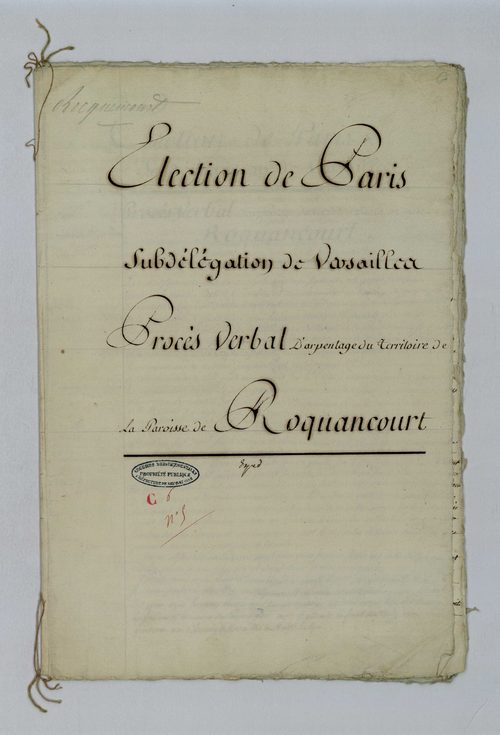 Rocquencourt
Election de Paris
Subdélégation de Versailles
Procès Verbal D'arpentage du Territoire de
La Paroisse de Roquancourt
ARCHIVES DÉPARTEMENTALES
PROPRIÉTÉ PUBLIQUE
C 6
n° 5